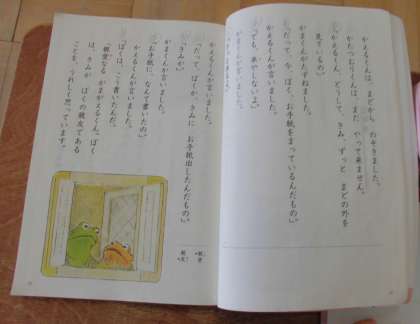 かえるくんは、まどから のぞきました。
かたつむりくんは、まだ やって来ません。
「かえるくん、どうして、きみ、ずっと まどの外を
見ているの。」
がまくんがたずねました。
「だって、今、ぼく、お手紙をまっているんだもの。」
かえるくんが言いました。
「でも、来やしないよ。」
がまくんが言いました。
かえるくんが言いました。
「だって、ぼくが、きみに お手紙出したんだもの。」
「きみが。」
がまくんが言いました。
「お手紙に、なんて書いたの。」
かえるくんが言いました。
「ぼくは、こう書いたんだ。
『親愛なる がまがえるくん。ぼく
は、きみが ぼくの親友である
ことを、うれしく思っています。